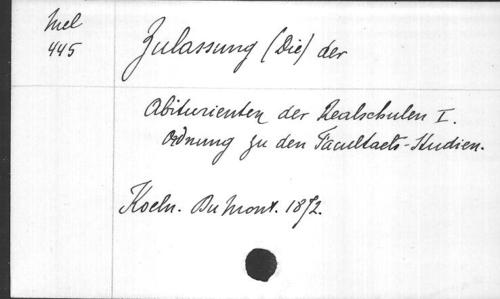 Mel
445
Zulassung (Die) der
Abiturienten der Realschulen I.
Ordnung zu den Facultaets-Studien.
Koeln. Du Mont. 1872.